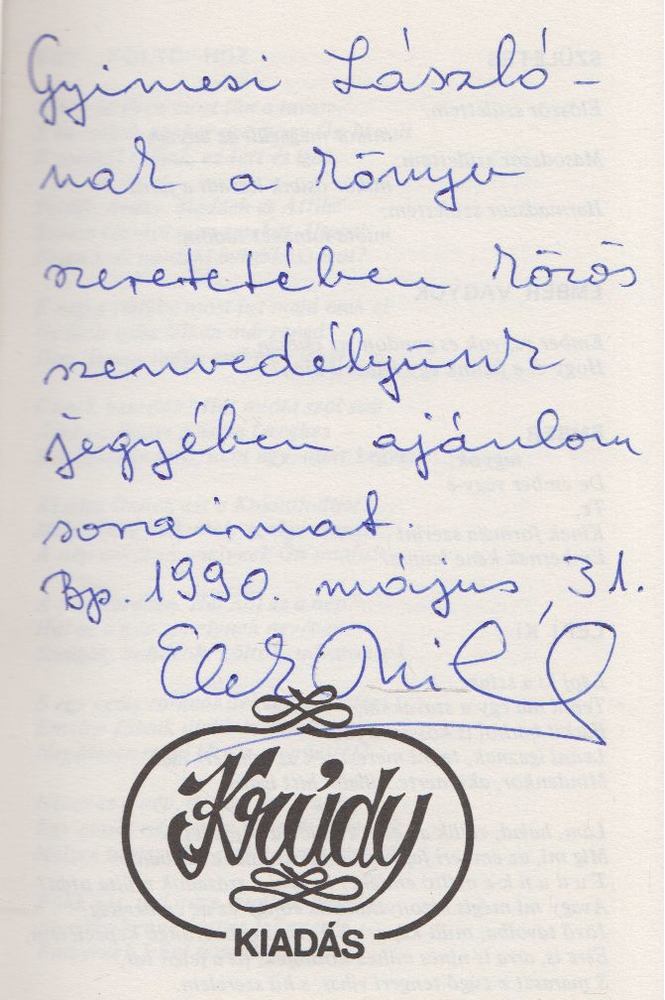 Gyimesi László-
nak a könyv
szeretetében közös
szenvedélyünk
jegyében ajánlom
soraimat.
Bp. 1990. május 31.
Krúdy
KIADÁS